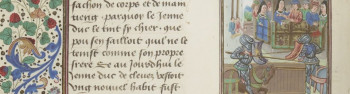 fachon de corps et de main
tieng . parquoy le Jenne
duc le tint sy chier , que
peu sen failloit quil ne le
tenist comme son propre
frere Et au Jourdhui le
Jenne duc de cleues vestoit
ong nouuel habit fust